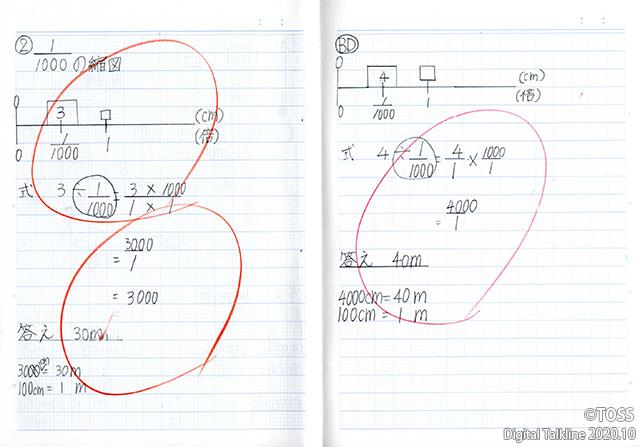 ② 1/1000 の縮図
0 3 □ (cm)
0 1/1000 1 (倍)
式 3 ÷ 1/1000 = 3 × 1000 / 1 × 1
= 3000/1
= 3000
答え 30m
3000cm = 30m
100cm = 1 m
BD
0 4 □ (cm)
0 1/1000 1 (倍)
式 4 ÷ 1/1000 = 4/1 × 1000/1
= 4000/1
答え 40m
4000cm = 40m
100cm = 1 m
©TOSS
Digital Talkline 2020.10